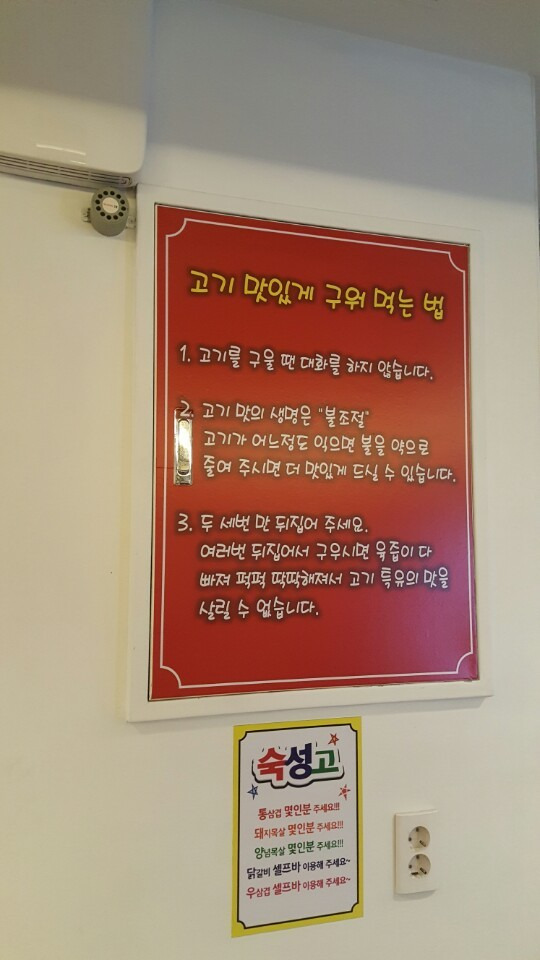 고기 맛있게 구워 먹는 법
1. 고기를 구울 땐 대화를 하지 않습니다.
2. 고기 맛의 생명은 "불조절"
고기가 어느정도 익으면 불을 약으로
줄여 주시면 더 맛있게 드실 수 있습니다.
3. 두 세번 만 뒤집어 주세요.
여러번 뒤집어서 구우시면 육즙이 다
빠져 퍽퍽 딱딱해져서 고기 특유의 맛을
살릴 수 없습니다.
숙성고
통삼겹 몇인분 주세요!!!
돼지목살 몇인분 주세요!!!
양념목살 몇인분 주세요!!!
닭갈비 셀프바 이용해 주세요~
우삼겹 셀프바 이용해 주세요~